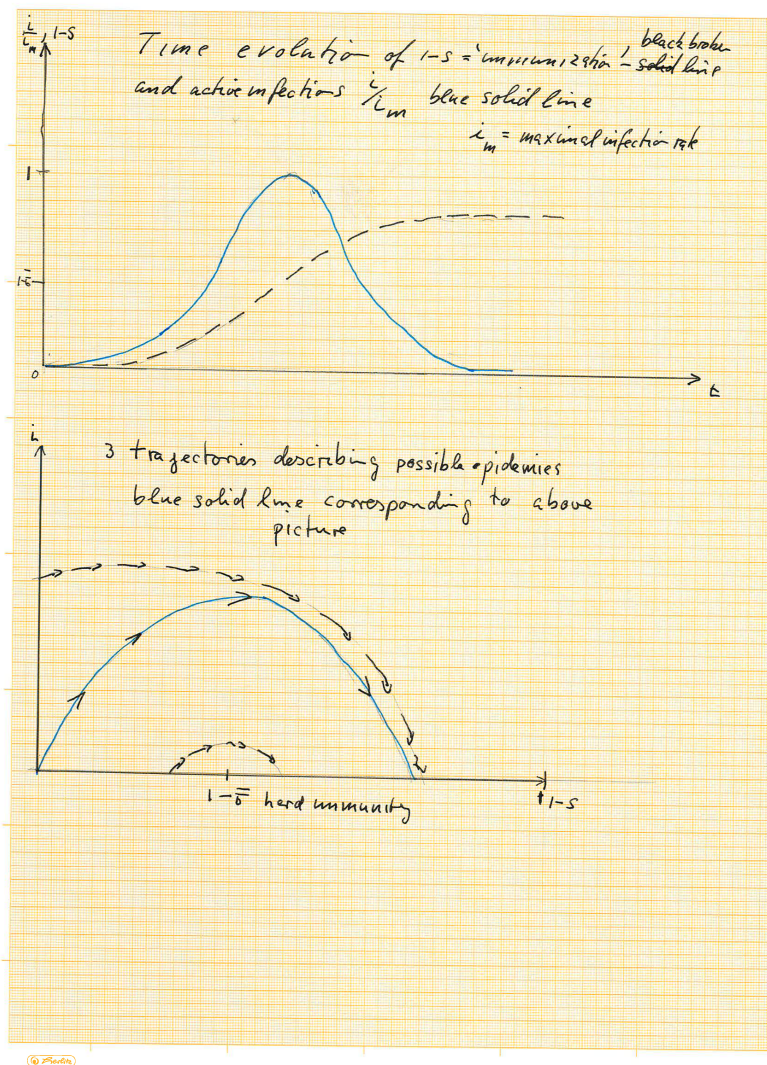 i/i_m, 1-s
Time evolution of 1-s = 'immunization', black broken
solid line
and active infections i/i_m blue solid line
i_m = maximal infection rate
1
1-σ̄
0
t
i
3 trajectories describing possible epidemies
blue solid line corresponding to above
picture
1-σ̄ herd immunity
1
1-s